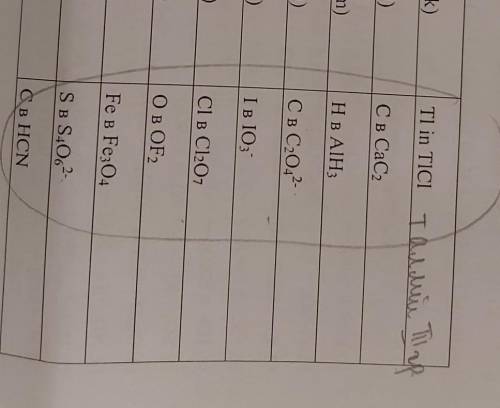 k) Tl in TlCl Таллий III гр
) C в CaC₂
m) H в AlH₃
) C в C₂O₄²⁻
) I в IO₃⁻
) Cl в Cl₂O₇
O в OF₂
Fe в Fe₃O₄
S в S₄O₆²⁻
C в HCN